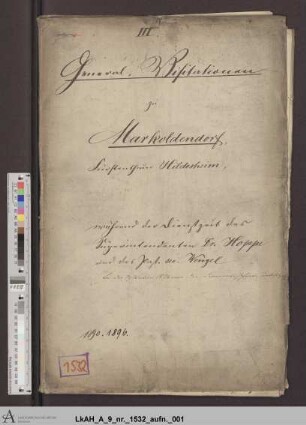 III.
General-Visitationen
Markoldendorf,
Fürstenthum Hildesheim,
während der Dienstzeit des
Superintendenten Dr. Hoppe
und des Past.
1890. 1896.
1532
LkAH_A_9_nr._1532_aufn._001